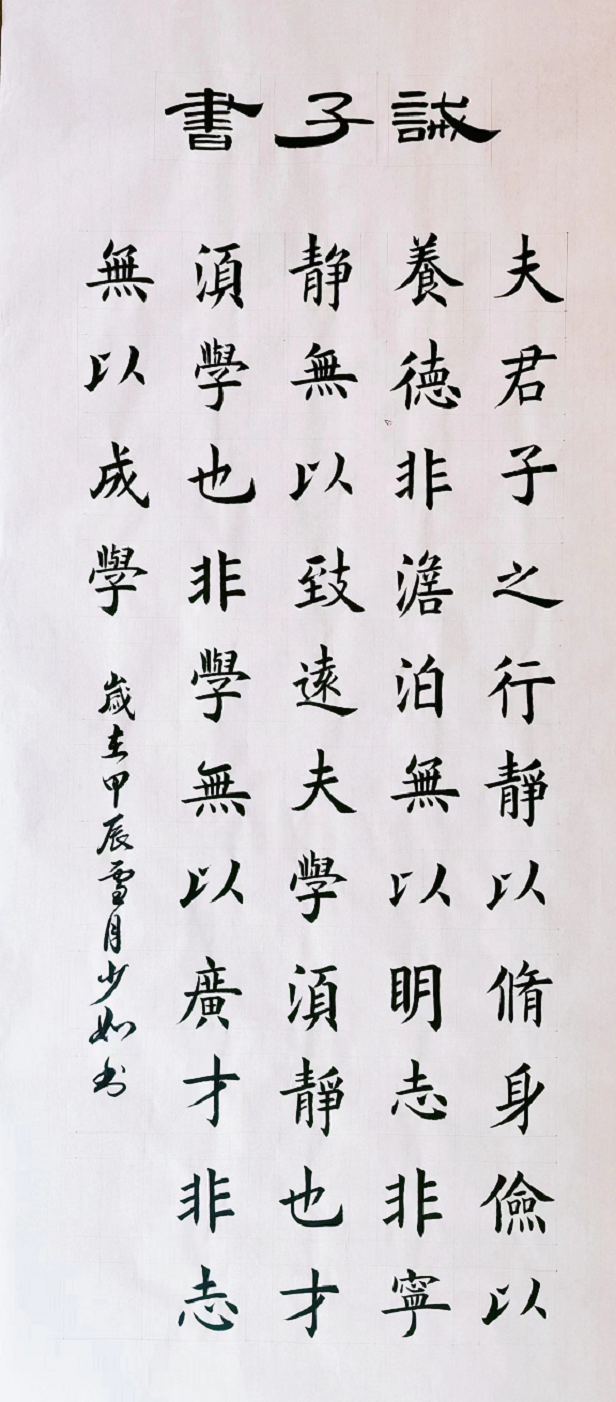 誡子書
夫君子之行静以脩身儉以
養德非澹泊無以明志非寧
静無以致遠夫學湏静也才
湏學也非學無以廣才非志
無以成學
歲在甲辰雪月少如书